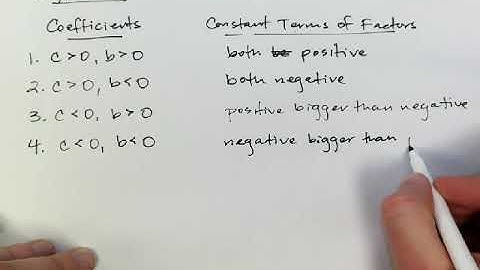 Coefficients Constant Terms of Factors
1. c>0, b>0 both positive
2. c>0, b<0 both negative
3. c<0, b>0 positive bigger than negative
4. c<0, b<0 negative bigger than